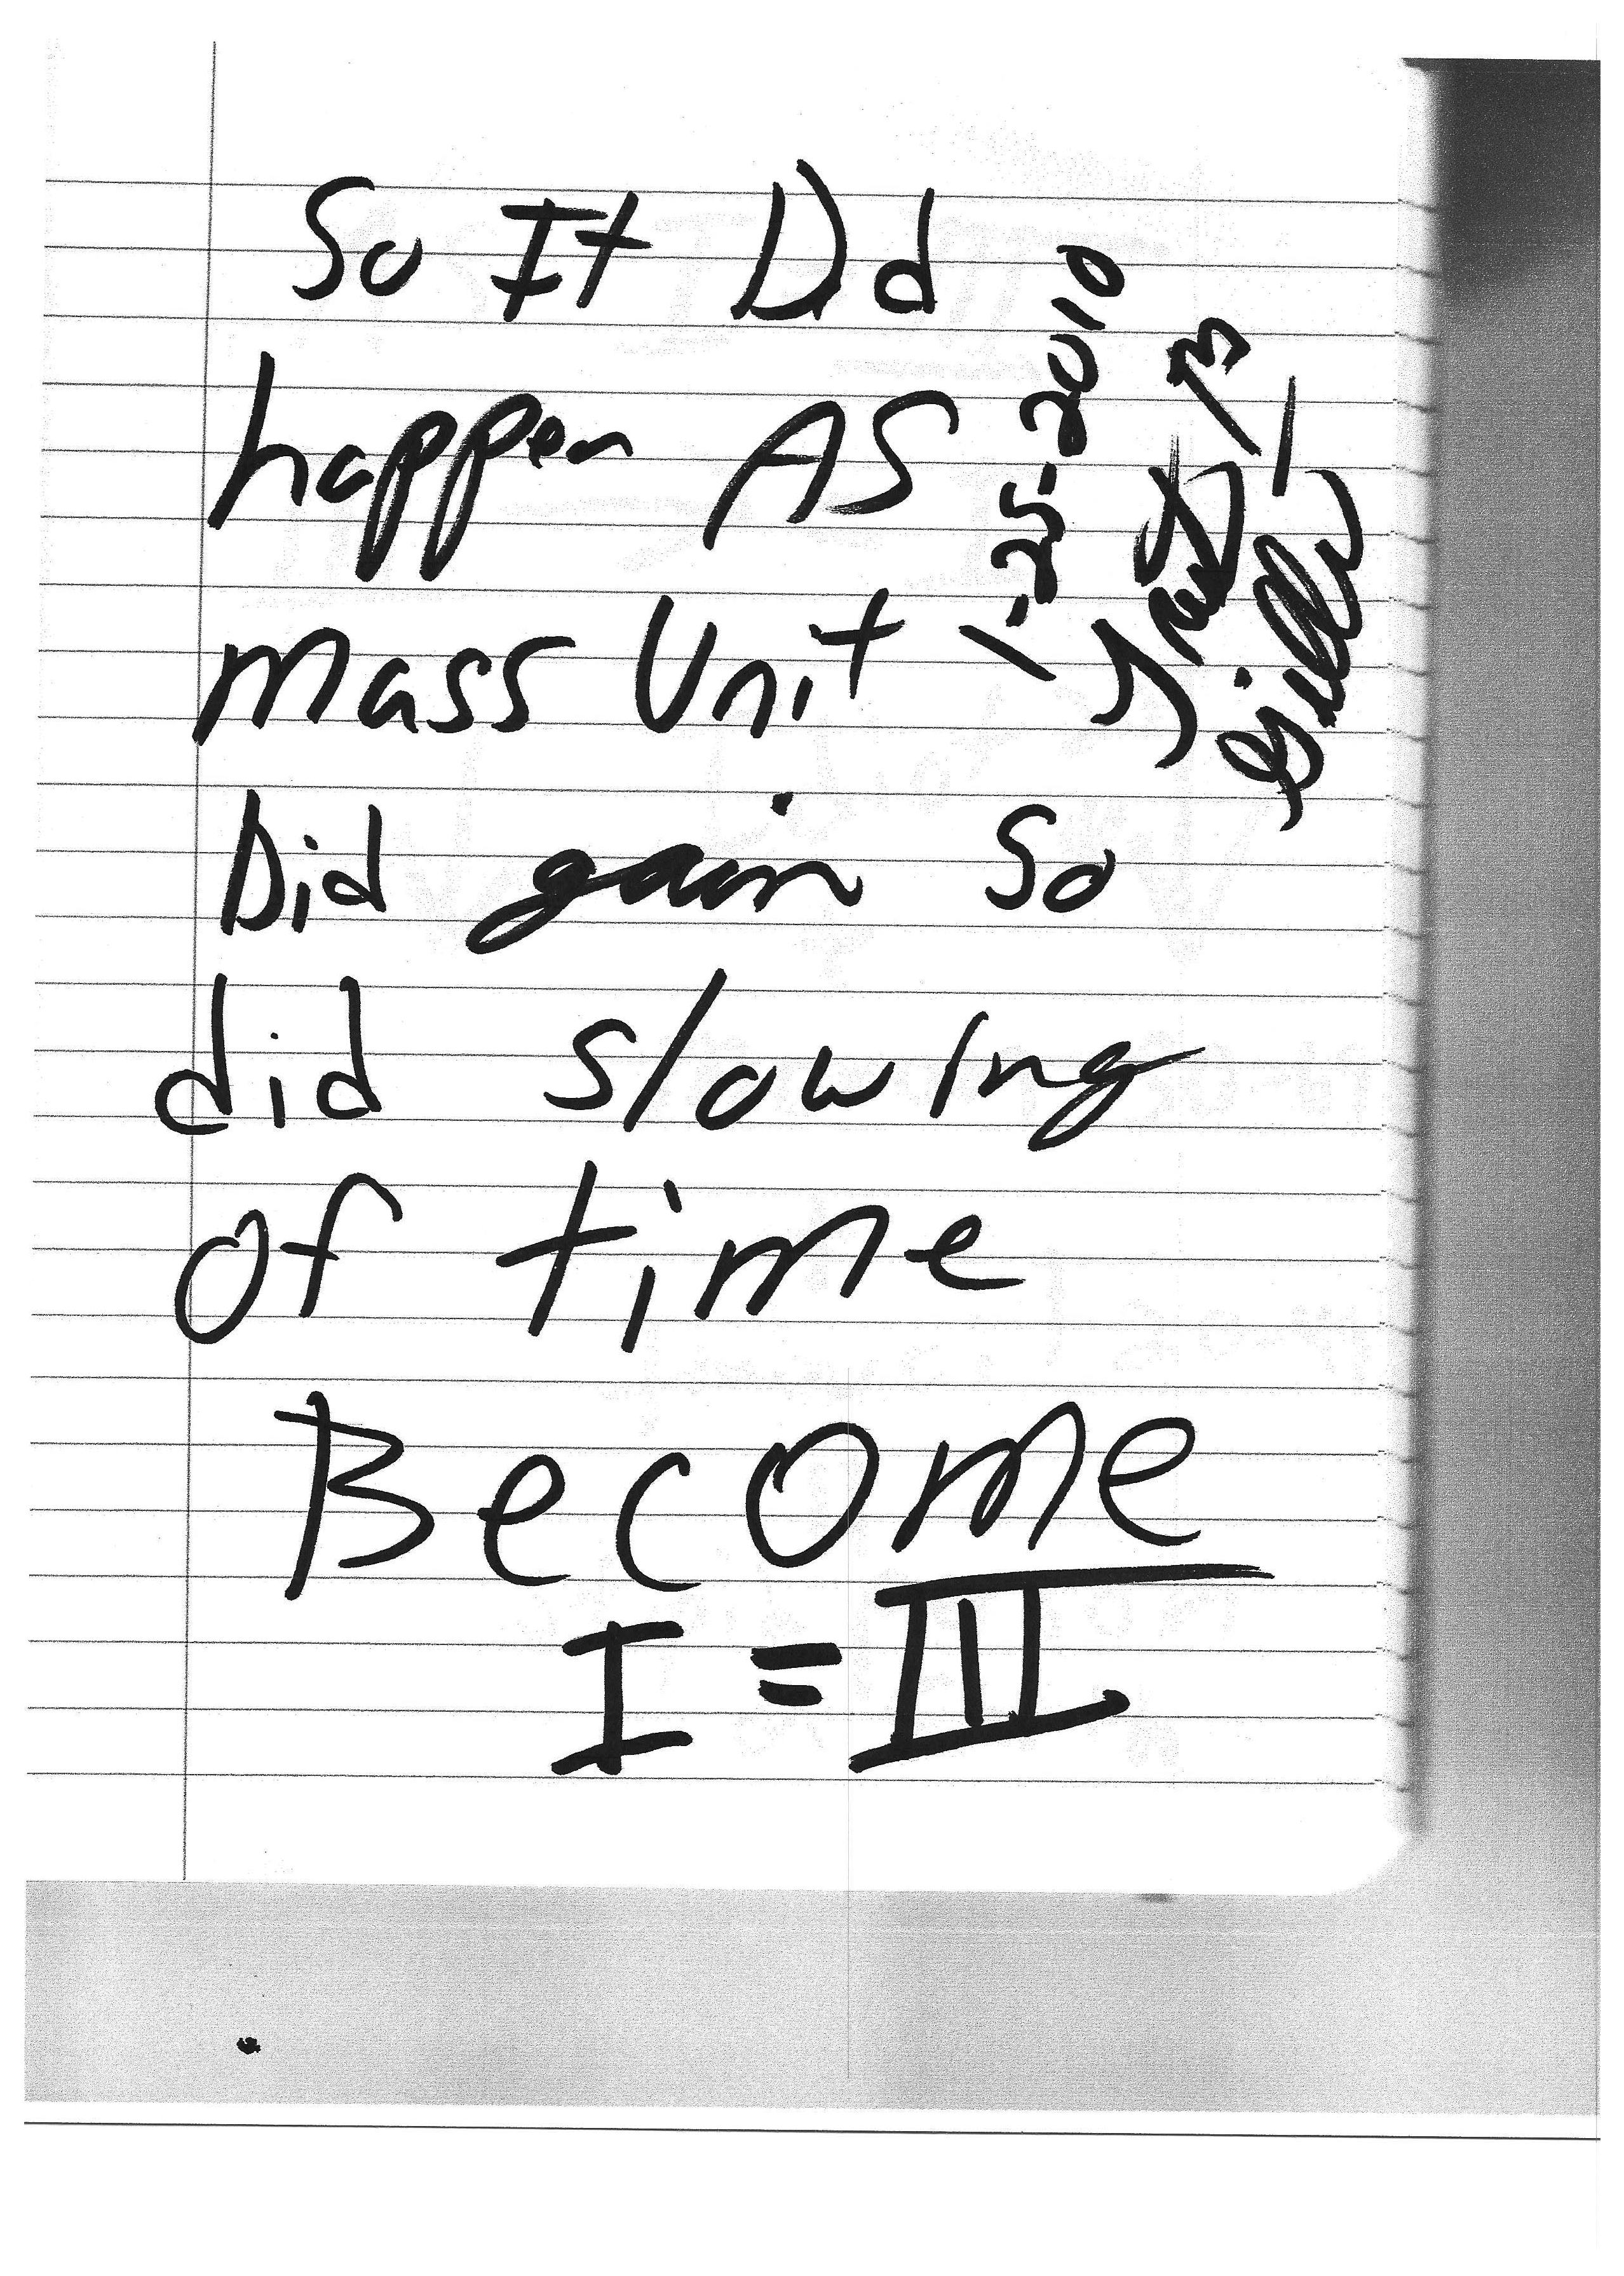 So It Did
happen AS
mass Unit
Did gain So
did slowing
of time
Become
I = III
1-25-2010